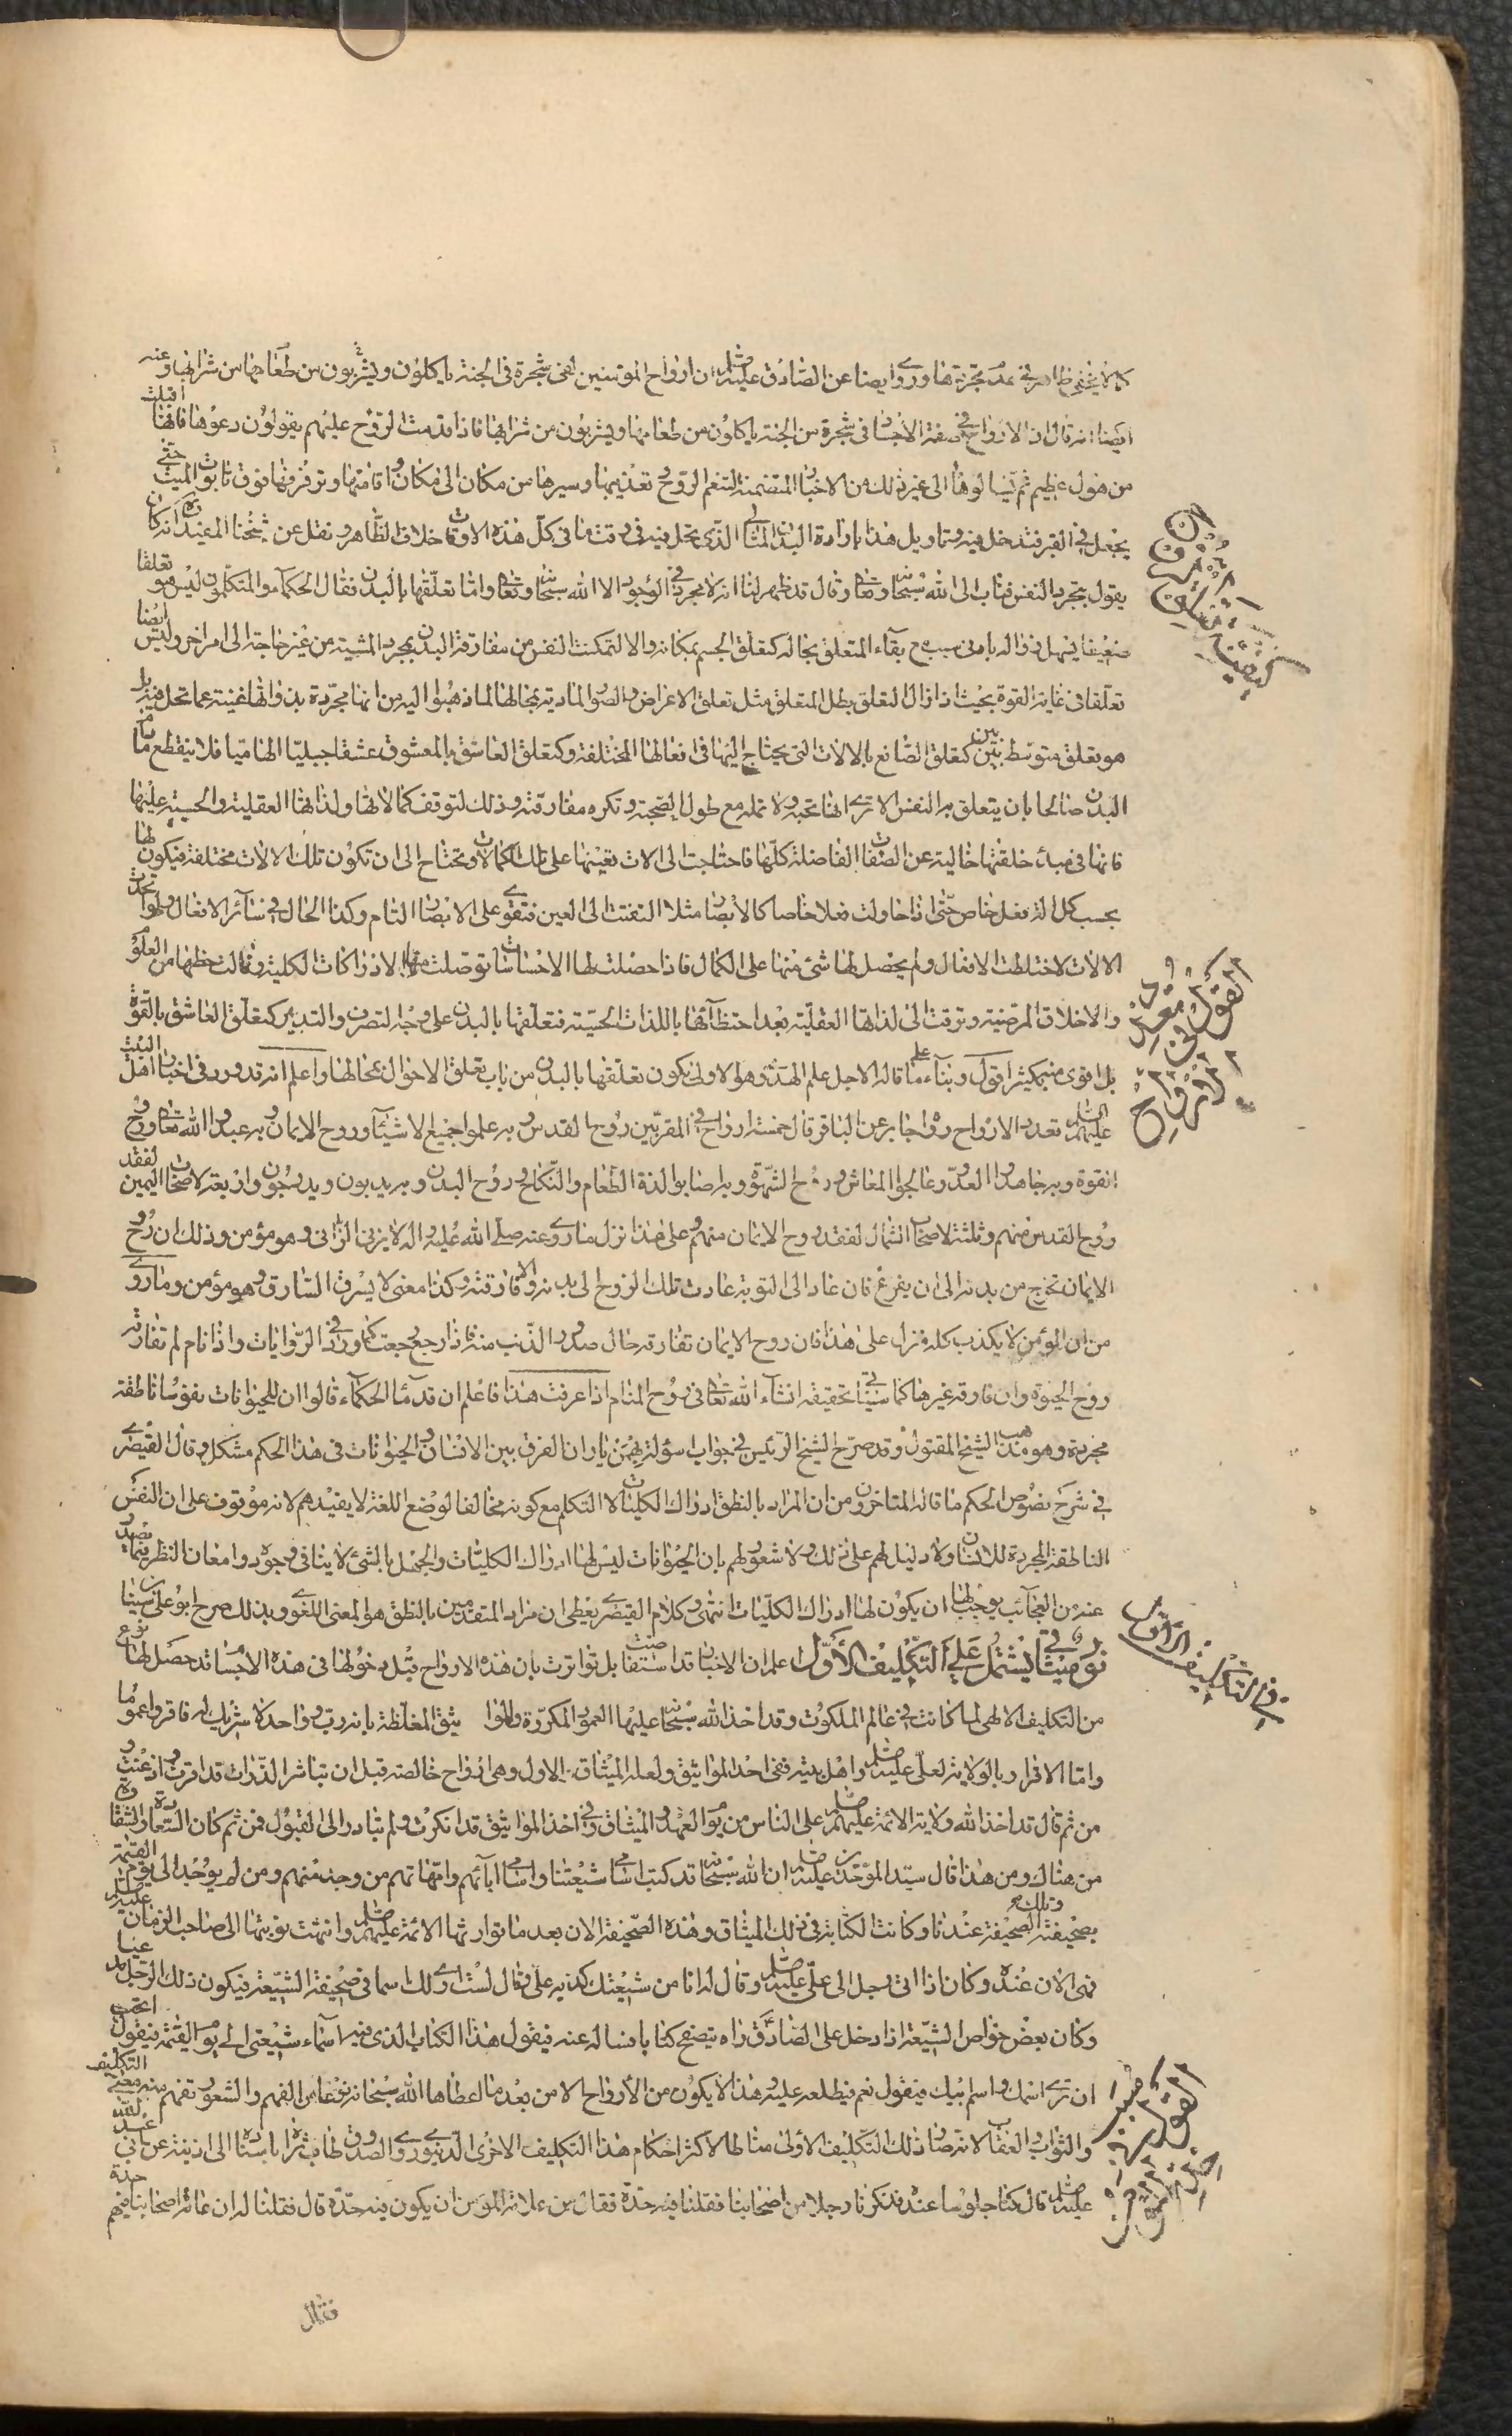 كما لا يخفى ظاهر في عدم تجردها وروى ايضا عن الصادق عليه السلم ان ارواح المؤمنين لفي شجرة في الجنة ياكلون ويشربون من طعامها من شرابها وعنه
ايضا انه قال ان الارواح في صفة الاجساد في شجرة من الجنة ياكلون من طعامها ويشربون من شرابها فاذا قدمت الروح عليهم يقولون دعوها فانها اقبلت
من هول عظيم ثم يسالوها الى غير ذلك من الاخبار المتضمنة لتنعم الروح وتعذيبها وسيرها من مكان الى مكان واقامتها وترفرفها فوق تابوت الميت حتى
يجعل في القبر فتدخل فيه وتاويل هذا بارادة البدن المثالي الذي تحل فيه في وقت ما في كل هذه الاوقات خلاف الظاهر ونقل عن شيخنا المفيد ره انه كان
يقول بتجرد النفس فتاب الى الله سبحانه وتعالى وقال قد ظهر لنا انه لا مجرد في الوجود الا الله سبحانه وتعالى واما تعلقها بالبدن فقال الحكماء والمتكلمون ليس هو تعلقا
ضعيفا يسهل زواله بادنى سبب مع بقاء المتعلق بحاله كتعلق الجسم بمكانه والا لتمكنت النفس من مفارقة البدن بمجرد المشية من غير حاجة الى امر اخر وليس ايضا
تعلقا في غاية القوة بحيث اذا زال التعلق بطل المتعلق مثل تعلق الاعراض والصور المادية بمحالها لما ذهبوا اليه من انها مجردة بذواتها غنية عما تحل فيه بل
هو تعلق متوسط بين بين كتعلق الصانع بالالات التي يحتاج اليها في افعالها المختلفة وكتعلق العاشق بالمعشوق عشقا جبليا الهاميا فلا ينقطع ما دام
البدن صالحا بان يتعلق به النفس الا ترى انها تحبه ولا تمله مع طول الصحبة وتكره مفارقته وذلك لتوقف كمالاتها ولذاتها العقلية والحسية عليها
فانها في مبدء خلقتها خالية عن الصفات الفاضلة كلها فاحتاجت الى الات تعينها على تلك الكمالات وتحتاج الى ان تكون تلك الالات مختلفة فيكون لها
بحسب كل الة فعل خاص حتى اذا حاولت فعلا خاصا كالابصار مثلا التفتت الى العين فتقوى على الابصار التام وكذا الحال في سائر الافعال ولو اتحدت
الالات لاختلطت الافعال ولم يحصل لها شئ منها على الكمال فاذا حصلت لها الاحساسات توصلت منها الى الادراكات الكلية ونالت حظها من العلوم
والاخلاق المرضية وترقت الى لذاتها العقلية بعد احتظائها باللذات الحسية فتعلقها بالبدن على وجه التصرف والتدبير كتعلق العاشق بالقوة
بل اقوى منه بكثير اقول وبناء على ما قاله الاجل علم الهدى وهو الاولى يكون تعلقها بالبدن من باب تعلق الاحوال بمحالها واعلم انه قد ورد في اخبار اهل البيت
عليهم السلم تعدد الارواح روى جابر عن الباقر قال خمسة ارواح في المقربين روح القدس وبه علموا جميع الاشياء وروح الايمان وبه عبدوا الله تعالى وروح
القوة وبه جاهدوا العدو وعالجوا المعاش وروح الشهوة وبه اصابوا لذة الطعام والنكاح وروح البدن وبه يدبون ويدرجون واربعة لاصحاب اليمين لفقد
روح القدس منهم وثلثة لاصحاب الشمال لفقد روح الايمان منهم وعلى هذا نزل ما روى عنه صلى الله عليه واله لا يزني الزاني وهو مؤمن وذلك ان روح
الايمان تخرج من بدنه الى ان يفرغ فان عاد الى التوبة عادت تلك الروح الى بدنه والا فارقته وكذا معنى لا يسرق السارق وهو مؤمن وما روى
من ان المؤمن لا يكذب كله نزل على هذا فان روح الايمان تفارقه حال صدور الذنب منه فاذا رجع رجعت كما ورد في الروايات واذا نام لم تفارقه
روح الحيوة وان فارقه غيرها كما سياتي تحقيقه انشاء الله تعالى في روح المنام اذا عرفت هذا فاعلم ان قدماء الحكماء قالوا ان للحيوانات نفوسا ناطقة
مجردة وهو مذهب الشيخ المقتول وقد صرح الشيخ الرئيس في جواب اسولة بهمنيار ان الفرق بين الانسان والحيوانات في هذا الحكم مشكل وقال القيصرى
في شرح نصوص الحكم ما قاله المتاخرون من ان المراد بالنطق ادراك الكليات لا التكلم مع كونه مخالفا لوضع اللغة لا يفيدهم لانه موقوف على ان النفس
الناطقة المجردة للانسان ولا دليل لهم على ذلك ولا شعور لهم بان الحيوانات ليس لها ادراك الكليات والجهل بالشئ لا ينافي وجوده وامعان النظر فيما يصدر
عنه من العجائب يوجب ان يكون لها ادراك الكليات انتهى وكلام القيصرى يعطى ان مراد المتقدمين بالنطق هو المعنى اللغوى وبذلك صرح ابو على بن سينا
نور في ميثاق يشتمل على التكليف الاول اعلم ان الاخبار قد استفاضت بل تواترت بان هذه الارواح قبل دخولها في هذه الاجساد قد حصل لها نوع
من التكليف الالهى لما كانت في عالم الملكوت وقد اخذ الله سبحانه عليها العهود المكررة والمواثيق المغلظة بانه رب واحد لا شريك له فاقروا عموما
واما الاقرار بالولاية لعلى عليه السلم واهل بيته ففي احد المواثيق ولعله الميثاق الاول وهي ارواح خالصة قبل ان تباشر الذرات قد اقرت واذعنت و
من ثم قال قد اخذ الله ولاية الائمة عليهم السلم على الناس من يوم العهد والميثاق وفي اخذ المواثيق قد انكرت ولم تبادر الى القبول فمن ثم كان السعادة والشقاوة
من هناك ومن هذا قال سيد الموحدين عليه السلم ان الله سبحانه قد كتب اسامي شيعتنا واسامي ابائهم وامهاتهم من وجد منهم ومن لم يوجد الى يوم القيمة
بصحيفة وتلك الصحيفة عندنا وكانت الكتابة في ذلك الميثاق وهذه الصحيفة الان بعد ما توارثها الائمة عليهم السلم وانتهت نوبتها الى صاحب الزمان عليه السلم
فهي الان عنده وكان اذا اتى رجل الى على عليه السلم وقال له انا من شيعتك كذبه على وقال لست ارى لك اسما في صحيفة الشيعة فيكون ذلك الرجل
وكان بعض خواص الشيعة اذا دخل على الصادق راه يتصفح كتابا فساله عنه فيقول هذا الكتاب الذي فيه اسماء شيعتي الى يوم القيمة فيقول اتحب
ان ترى اسمك واسم ابيك فيقول نعم فيطلعه عليه وهذا لا يكون من الارواح الا من بعد ما اعطاها الله سبحانه نوعا من الفهم والشعور تفهم منه معنى التكليف
والثواب والعقاب لانه صار ذلك التكليف الاولى مناطا لاكثر احكام هذا التكليف الاخرى الدنيوى روى الصدوق طاب ثراه باسناده الى اذينة عن ابي عبد الله
عليه السلم قال كنا جلوسا عنده فذكرنا رجلا من اصحابنا فقلنا فيه حدة فقال من علامة المؤمن ان يكون فيه حدة قال فقلنا له ان عامة اصحابنا فيهم حدة
فقال
القول في تعدد الارواح
في التكليف الاول